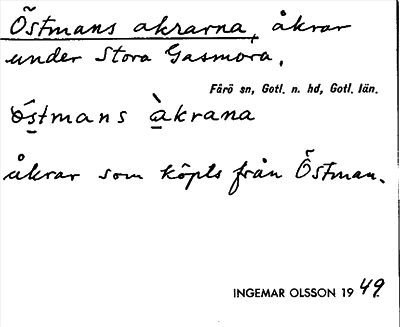 Östmans akrarna, åkrar
under Stora Gasmora.
Fårö sn, Gotl. n. hd, Gotl. län.
ö́s̲tmans à̲krana
åkrar som köpts från Östman.
INGEMAR OLSSON 19 49.